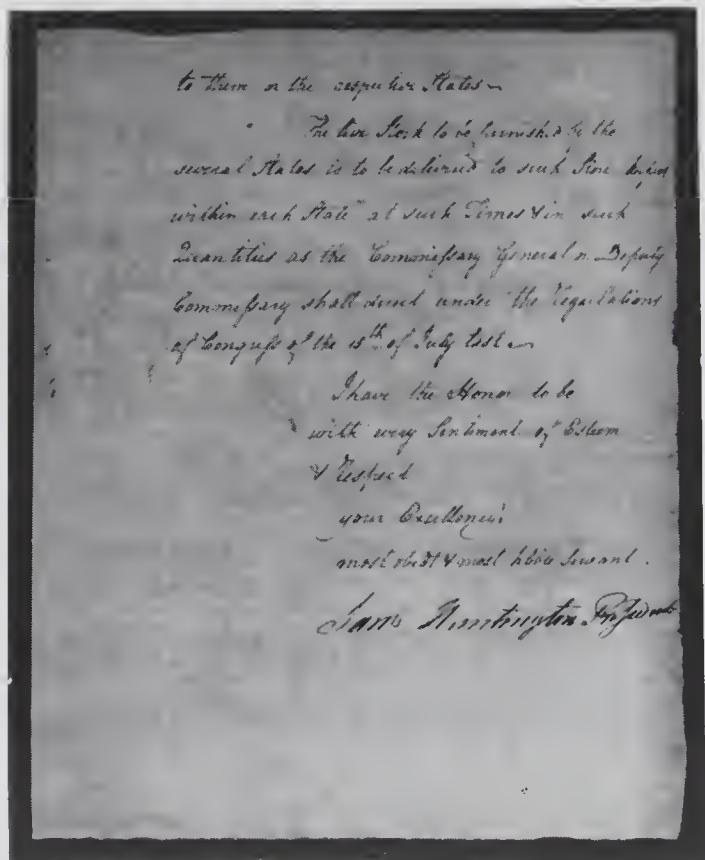 to them or the respective States~
The live Stock to be furnished by the
several States is to be delivered to such
within each State at such Times & in such
Quantities as the Commissary General or Deputy
Commissary shall direct under the Regulations
of Congress of the 15th of July last~
I have the Honor to be
with every Sentiment of Esteem
& Respect
your Excellency's
most obedt & most hble Servant.
Sam Huntington President